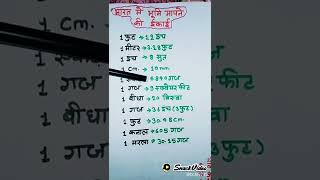 भारत में भूमि मापने
की इकाई
1 फुट → 12 इंच
1 मीटर → 3.28 फुट
1 इंच → 8 सूत
1 Cm. → 10 mm
1 → 4840 गज
1 गज → 9 स्क्वेयर फीट
1 बीघा → 20 बिस्वा
1 गज → 36 इंच (3 फुट)
1 फुट → 30.48 Cm.
1 कनाल → 605 गज
1 मरला → 30.25 गज
SnackVideo